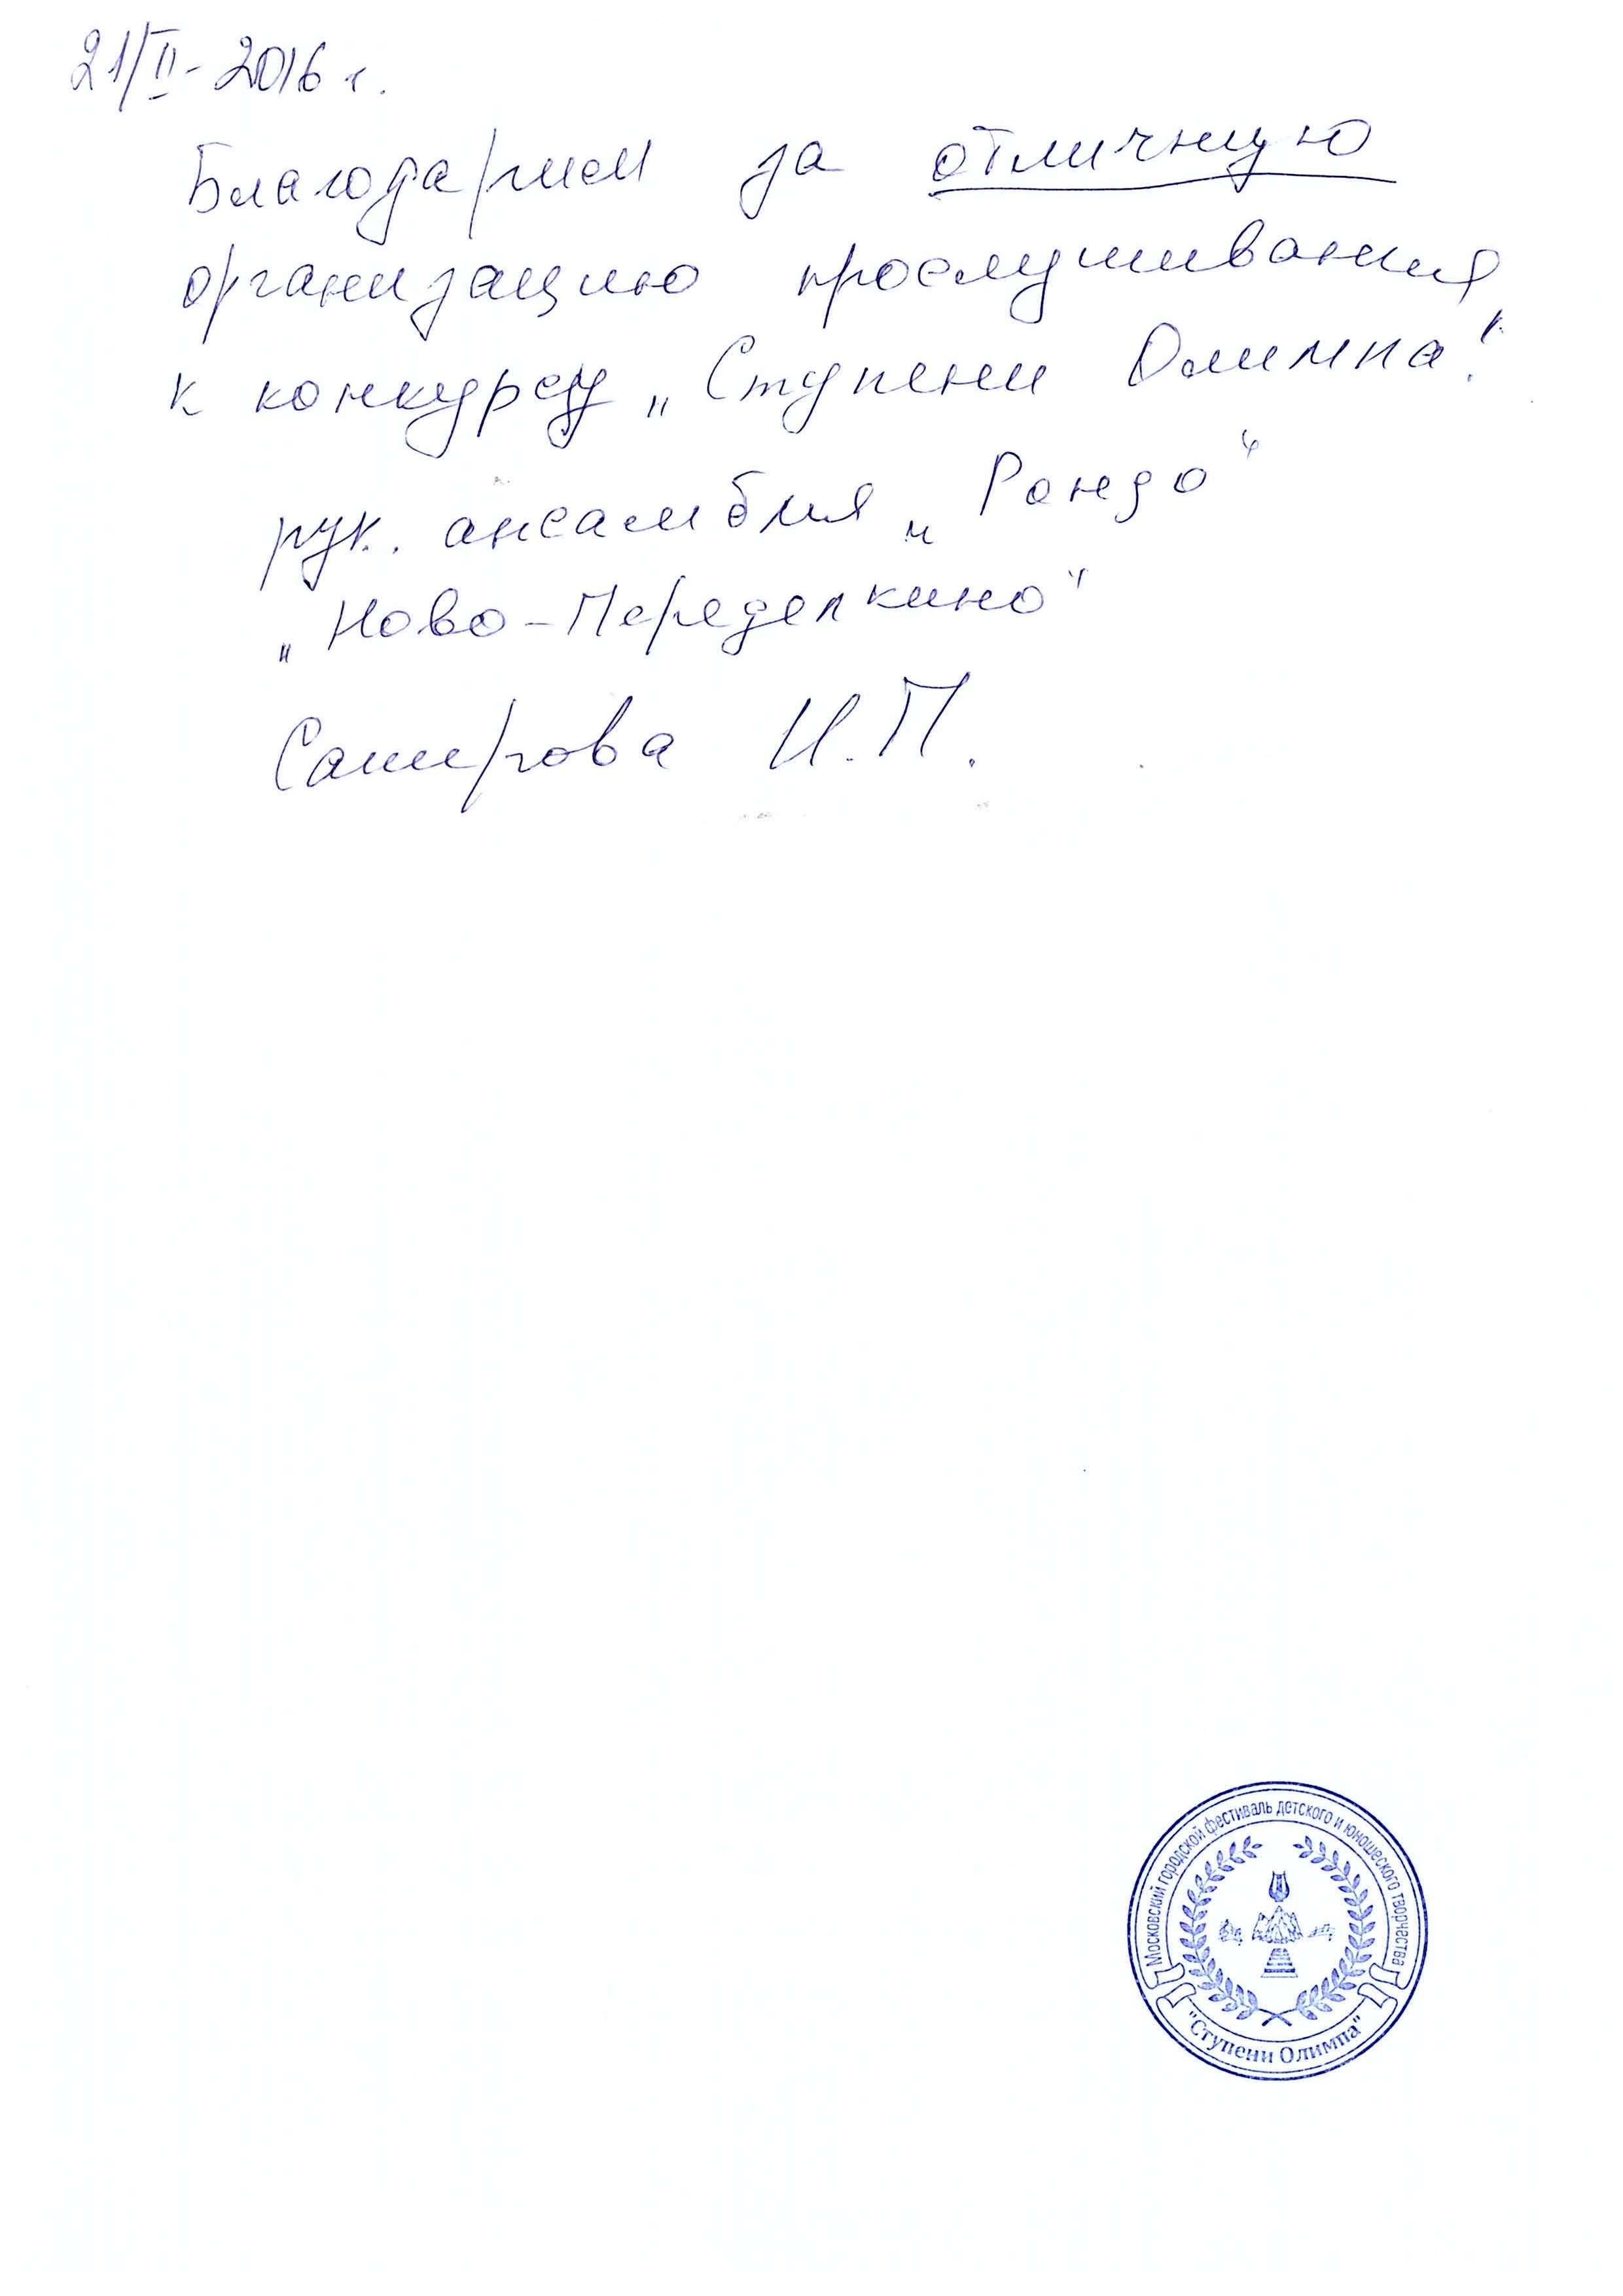 21/II-2016 г.
Благодарим за отличную
организацию прослушивания
к конкурсу „Ступени Олимпа“.
рук. ансамбля „Рондо“
„Ново-Переделкино“
И.П.
Московский городской фестиваль детского и юношеского творчества
"Ступени Олимпа"